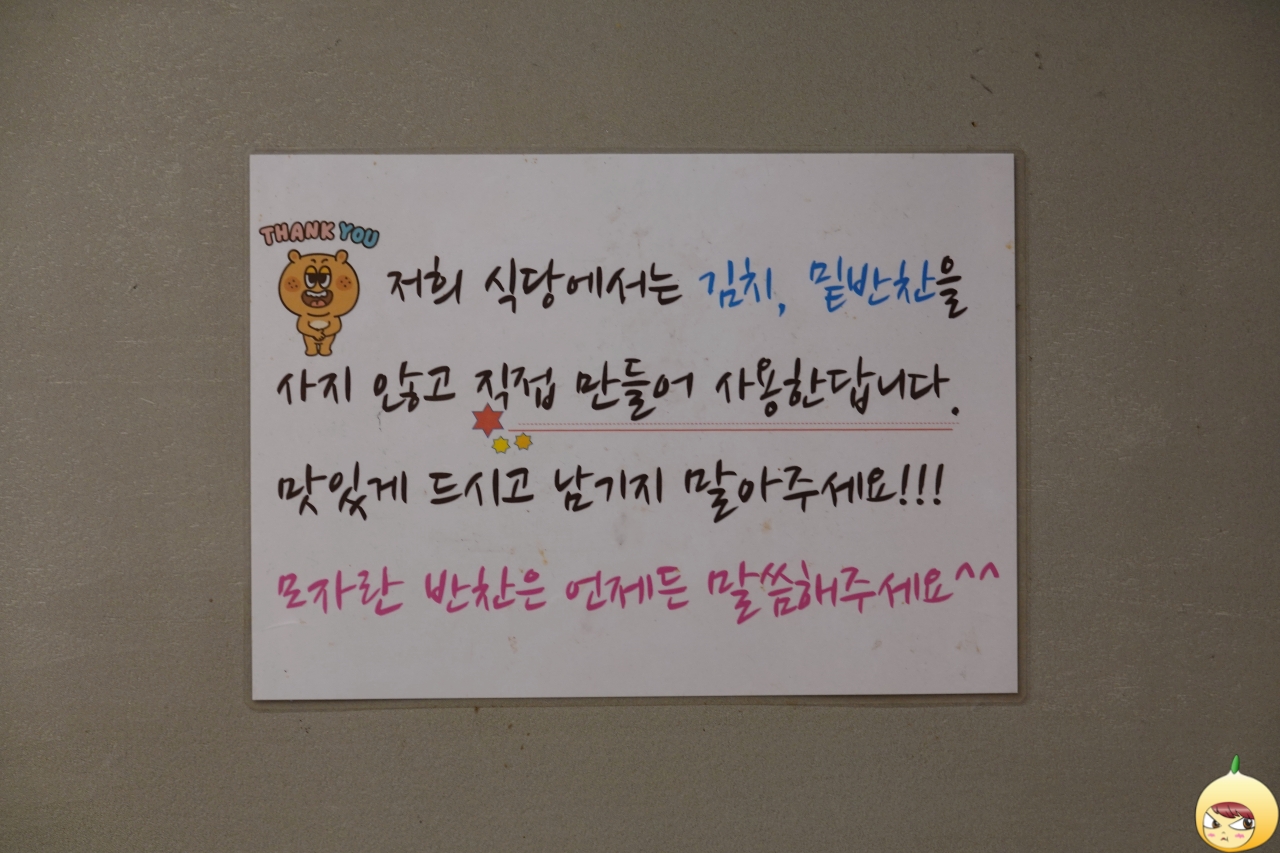 THANK YOU
저희 식당에서는 김치, 밑반찬을
사지 않고 직접 만들어 사용한답니다.
맛있게 드시고 남기지 말아주세요!!!
모자란 반찬은 언제든 말씀해주세요^^